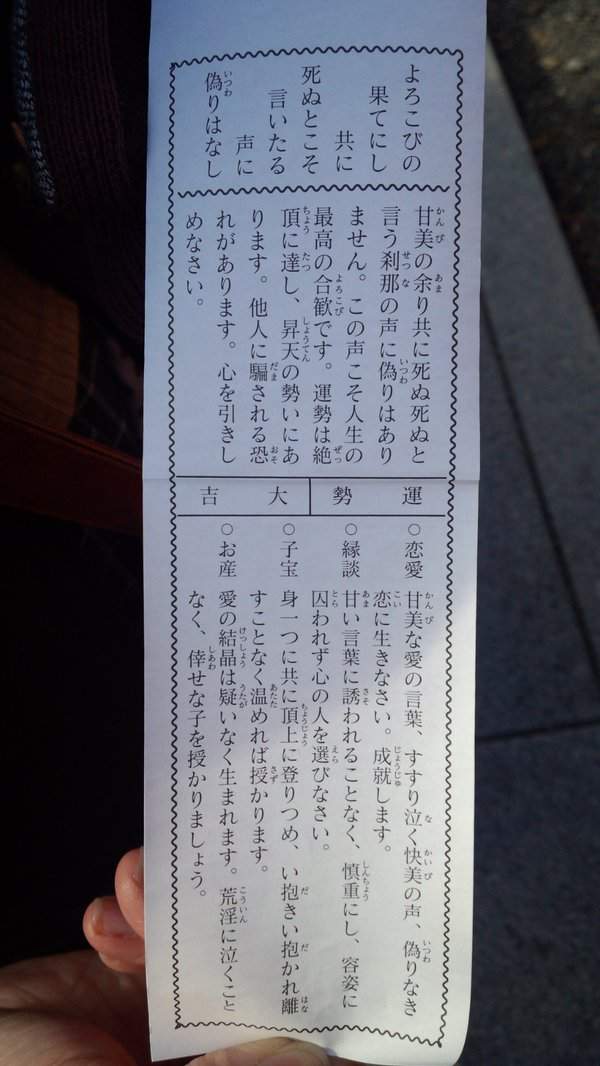 よろこびの
果てにし
共に
死ぬとこそ
言いたる
声に
偽りはなし
甘美の余り共に死ぬ死ぬと
言う刹那の声に偽りはあり
ません。この声こそ人生の
最高の合歓です。運勢は絶
頂に達し、昇天の勢いにあ
ります。他人に騙される恐
れがあります。心を引きし
めなさい。
運勢
大吉
○恋愛 甘美な愛の言葉、すすり泣く快美の声、偽りなき
恋に生きなさい。成就します。
○縁談 甘い言葉に誘われることなく、慎重にし、容姿に
囚われず心の人を選びなさい。
○子宝 身一つに共に頂上に登りつめ、い抱きい抱かれ離
すことなく温めれば授かります。
○お産 愛の結晶は疑いなく生まれます。荒淫に泣くこと
なく、倖せな子を授かりましょう。